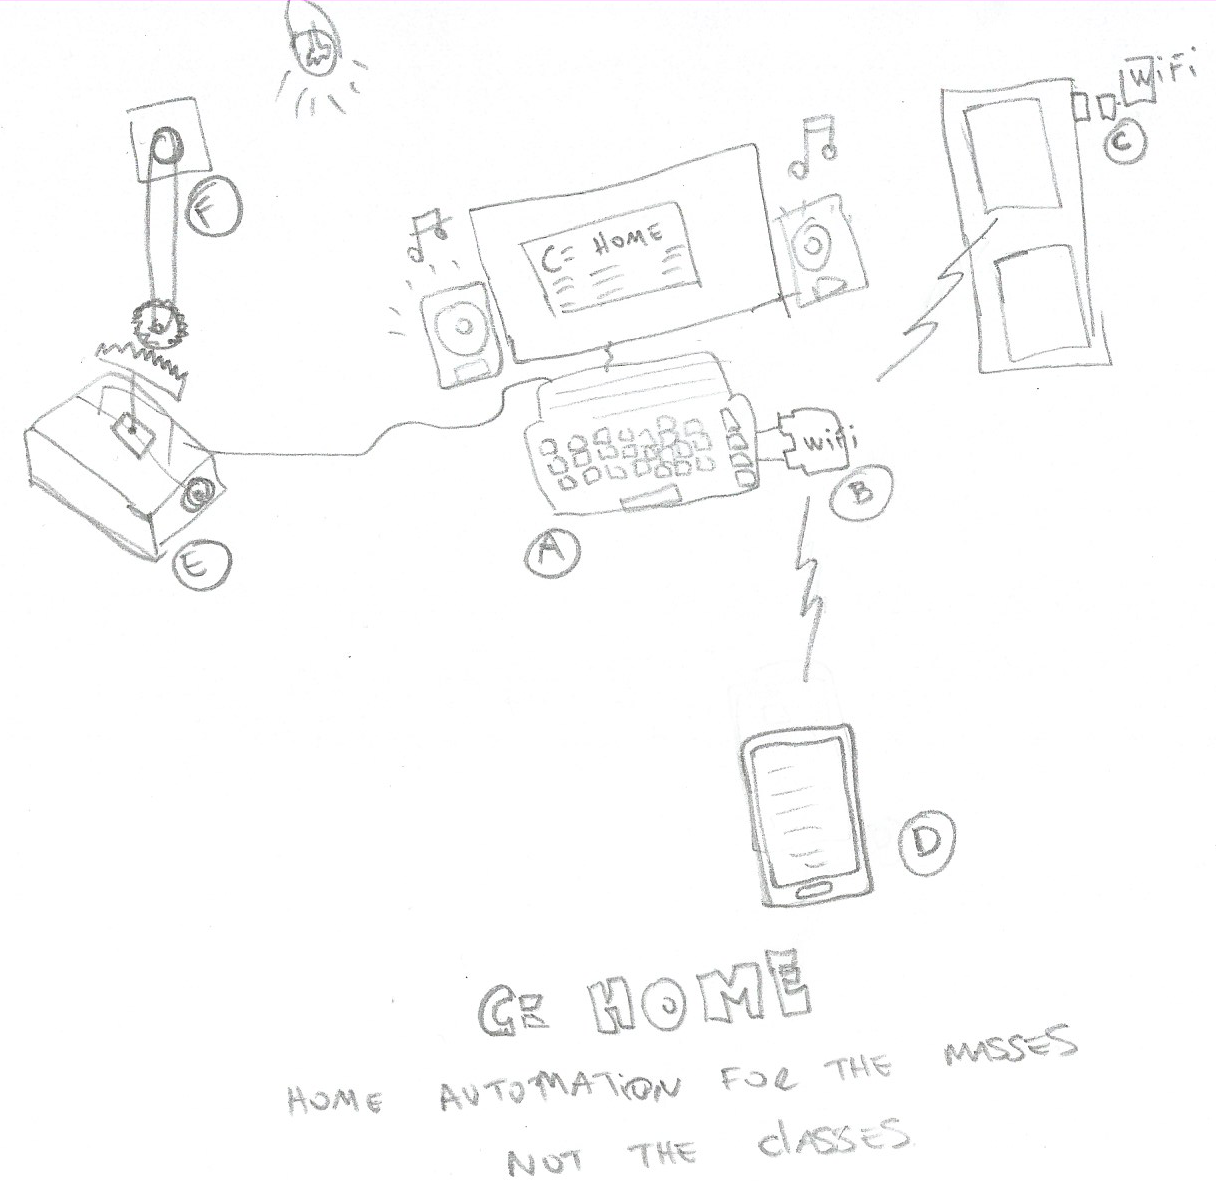 WiFi
C
F
C= HOME
WiFi
B
A
E
D
C= HOME
HOME AUTOMATION FOR THE MASSES
NOT THE CLASSES